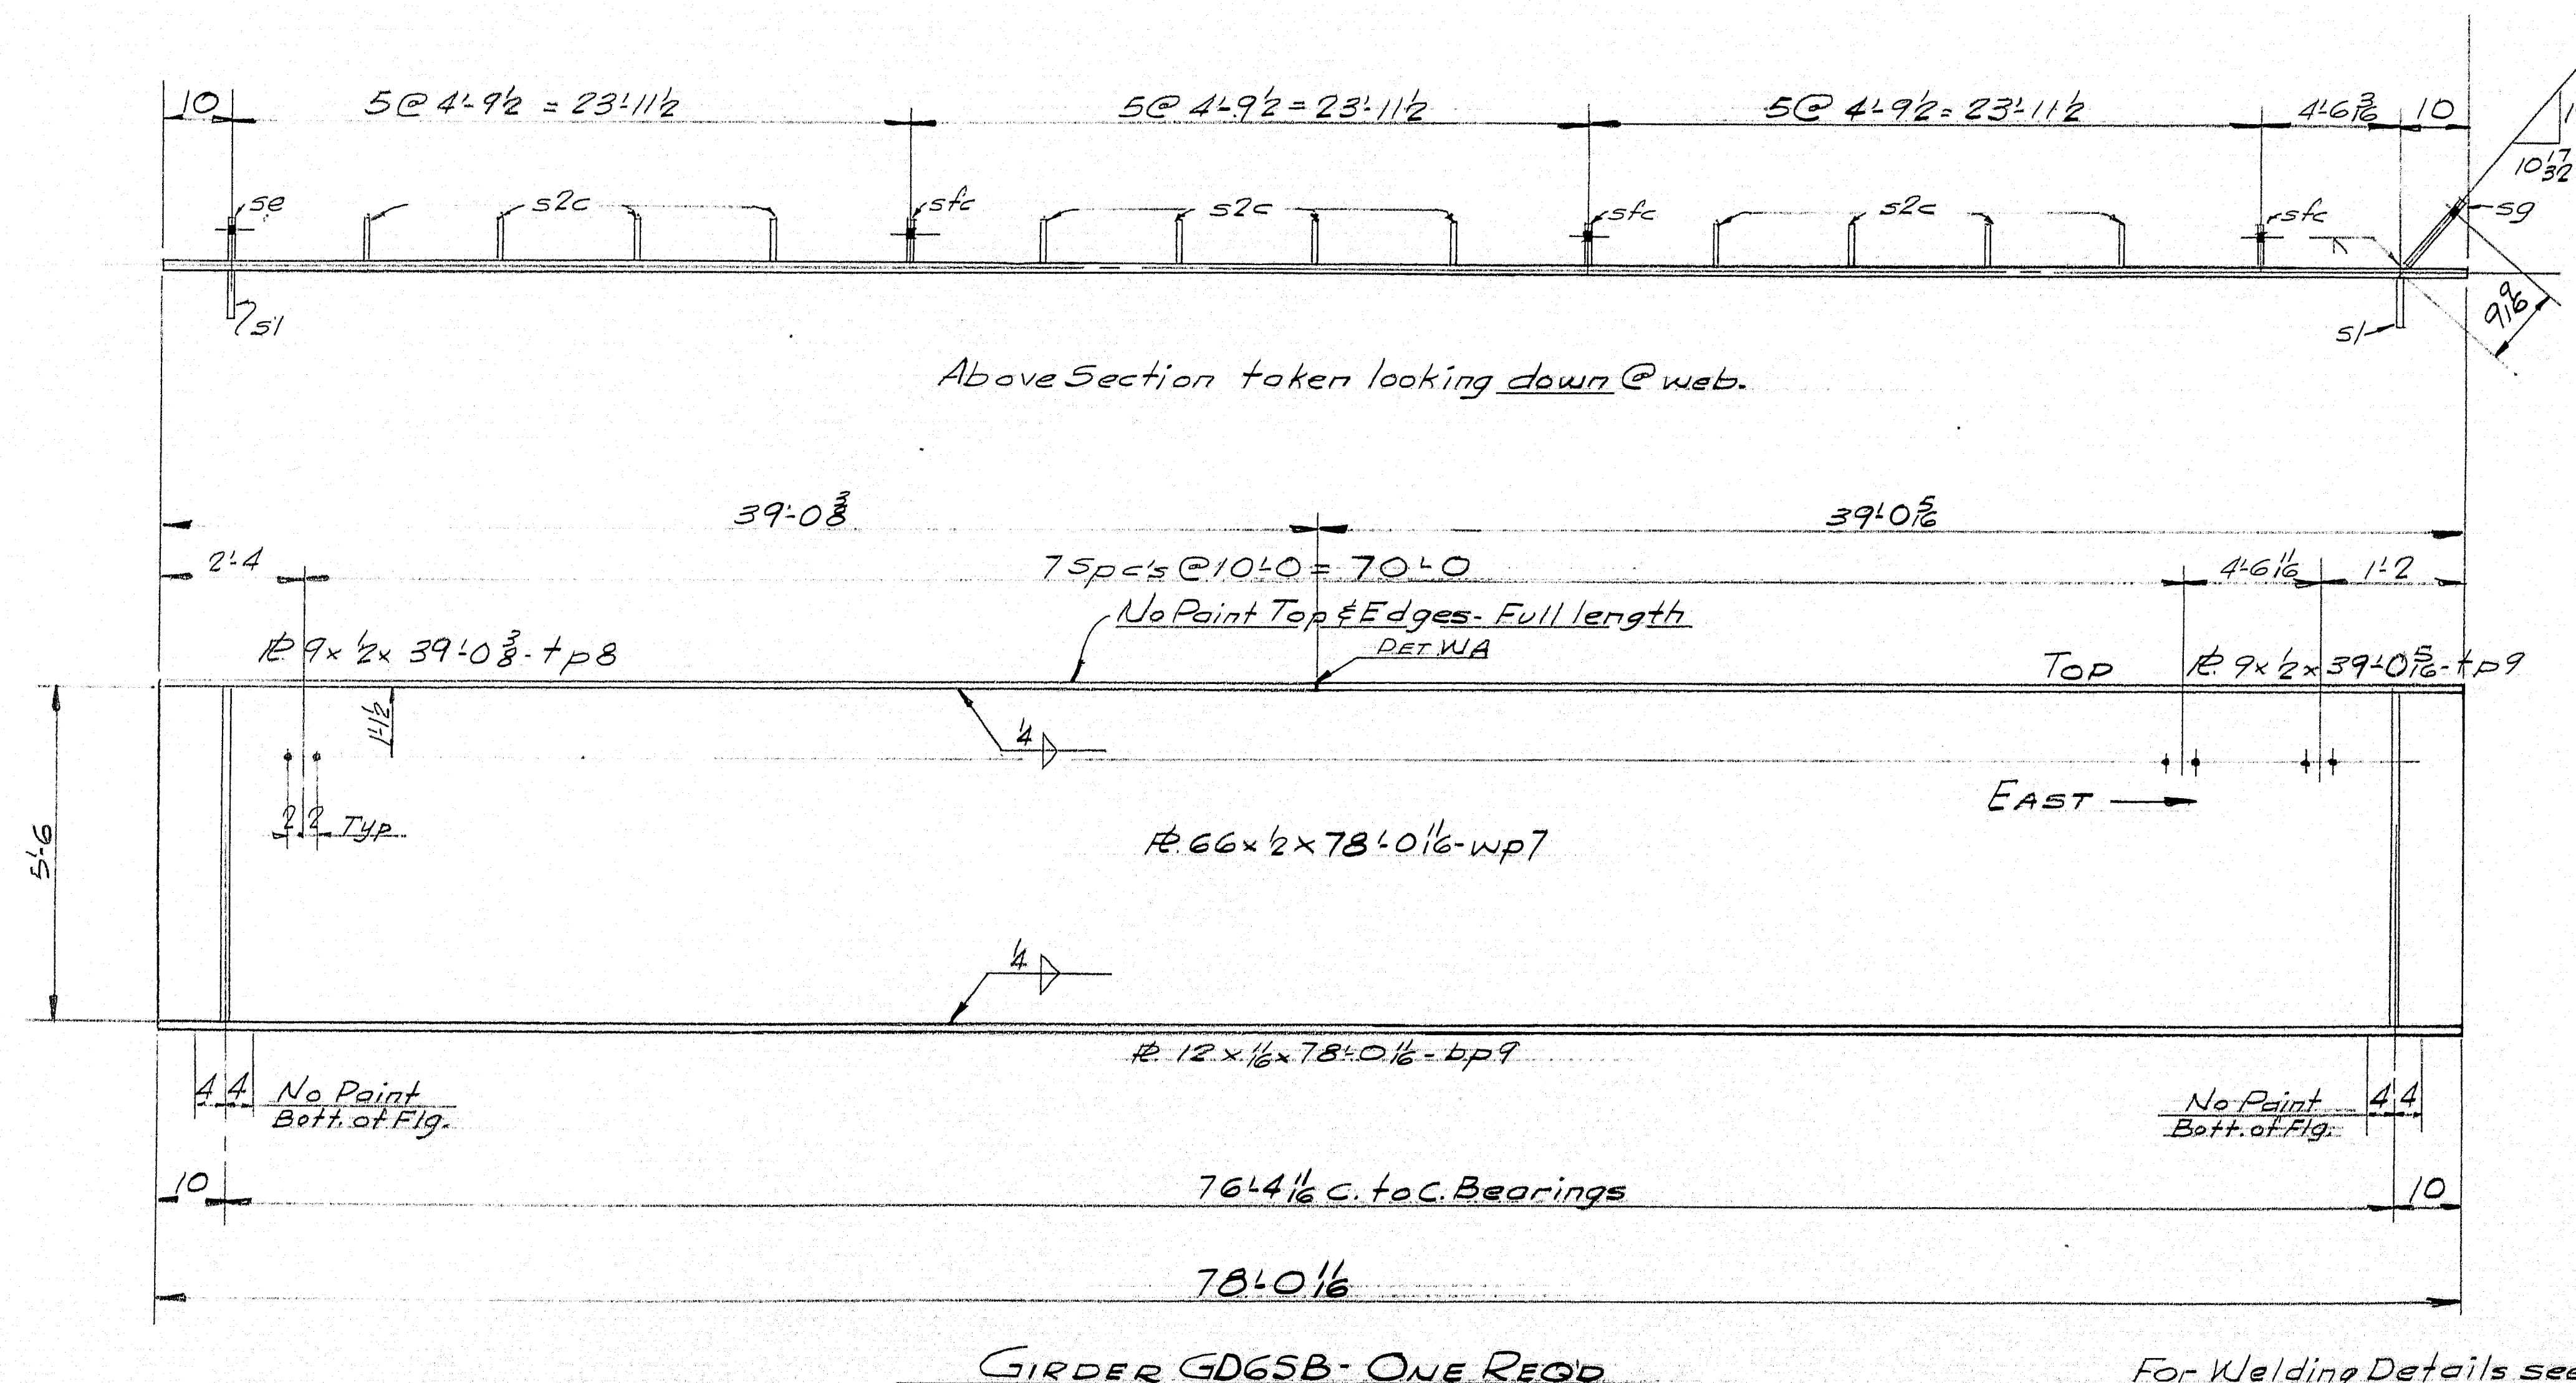 10 5@ 4'-9½ = 23'-11½ 5@ 4'-9½ = 23'-11½ 5@ 4'-9½ = 23'-11½ 4'-6 3/16 10
10 17/32
se s2c sfc s2c sfc s2c sfc sg
s1 s1 9 9/16
Above Section taken looking down @ web.
39'-0 3/8 39'-0 5/16
2'-4 7 Spc's @ 10'-0 = 70'-0 4'-6 11/16 1'-2
No Paint Top & Edges - Full length
℄ 9 x ½ x 39'-0 3/8 - tp8 DET WA TOP ℄ 9 x ½ x 39'-0 5/16 - tp9
1'-1½ ¼
2 2 TYP. EAST
5'-6 ℄ 66 x ½ x 78'-0 11/16 - wp7
¼
℄ 12 x 11/16 x 78'-0 11/16 - bp9
4 4 No Paint No Paint 4 4
Bott. of Flg. Bott. of Flg.
10 76'-4 11/16 c. to c. Bearings 10
78'-0 11/16
GIRDER GD6SB - ONE REQ'D
For Welding Details see